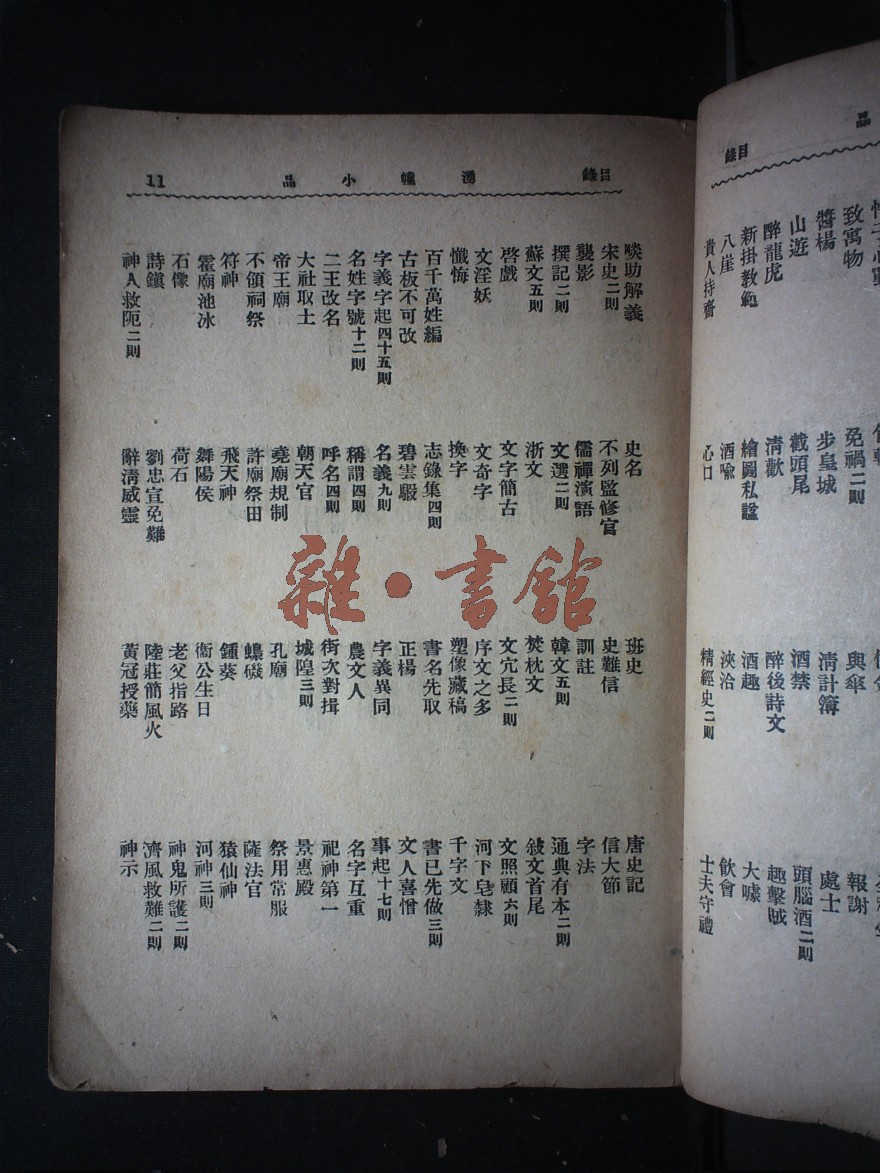 目錄
品
致寓物　免禍二則　與傘　報謝
醬楊　步皇城　清計簿　處士
山遊　截頭尾　酒禁　頭腦酒二則
醉龍虎　清歡　醉後詩文　趣擊賊
新掛教　繪圖私諡　酒趣　大噱
八崖　酒喻　浹洽　飲會
貴人持齋　心口　精經史二則　士夫守禮
目錄　湧幢小品　11
啖助解義　史名　班史　唐史記
宋史二則　不列監修官　史難信　信大節
襲影　儒禪演語　訓註　字法
撰記二則　文選二則　韓文五則　通典有本二則
蘇文五則　浙文　焚枕文　敍文首尾
啓戲　文字簡古　文宂長二則　文照顧六則
文淫妖　文奇字　序文之多　河下皂隸
懺悔　換字　塑像藏稿　千字文
百千萬姓編　志錄集四則　書名先取　書已先做三則
古板不可改　碧雲騢　正楊　文人喜憎
字義字起四十五則　名義九則　字義異同　事起十七則
名姓字號十二則　稱謂四則　農文人　名字互重
二王改名　呼名四則　街次對揖　祀神第一
大社取土　朝天官　城隍三則　景惠殿
帝王廟　堯廟規制　孔廟　祭用常服
不領祠祭　許廟祭田　蟂磯　薩法官
符神　飛天神　鍾葵　猿仙神
霍廟池冰　舞陽侯　衞公生日　河神三則
石像　荷石　老父指路　神鬼所護二則
詩鎮　劉忠宣免難　陸莊簡風火　濟風救難二則
神人救阨二則　辭清威靈　黃冠授藥　神示
雜·書館